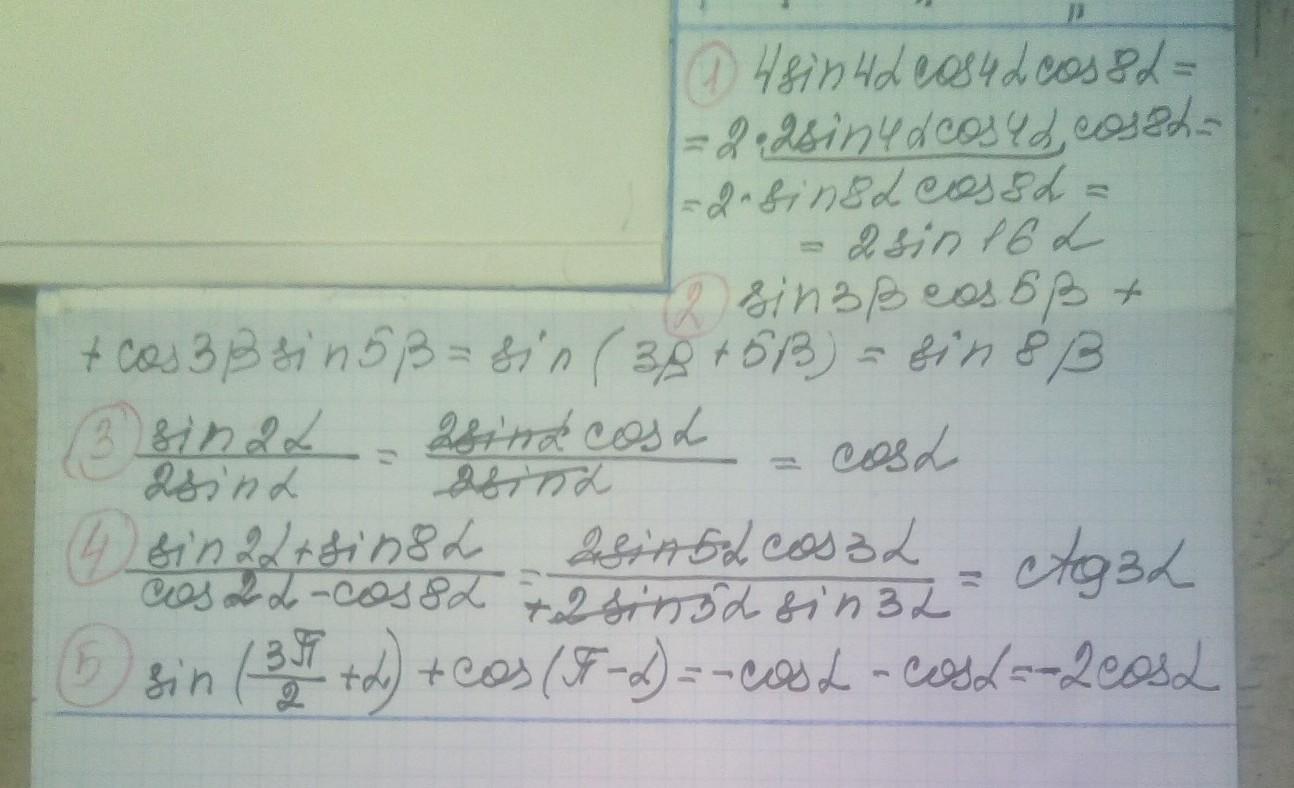 ① 4sin4αcos4αcos8α =
= 2·2sin4αcos4α cos8α =
= 2·sin8αcos8α =
= 2sin16α
② sin3βcos5β +
+ cos3βsin5β = sin(3β+5β) = sin8β
③ sin2α/2sinα = 2sinαcosα/2sinα = cosα
④ sin2α+sin8α/cos2α-cos8α = 2sin5αcos3α/+2sin5αsin3α = ctg3α
⑤ sin(3π/2+α)+cos(π-α)=-cosα-cosα=-2cosα